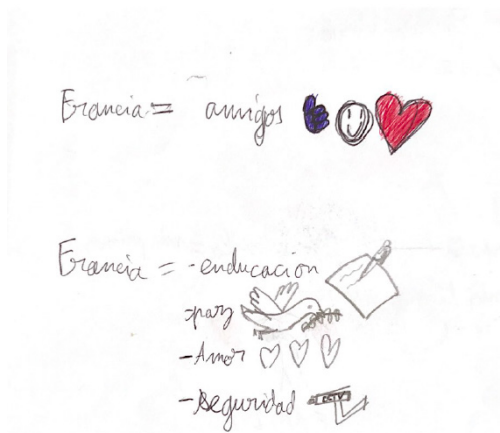 Francia = amigos
Francia = - enducacion
- paz
- Amor
- seguridad CCTV